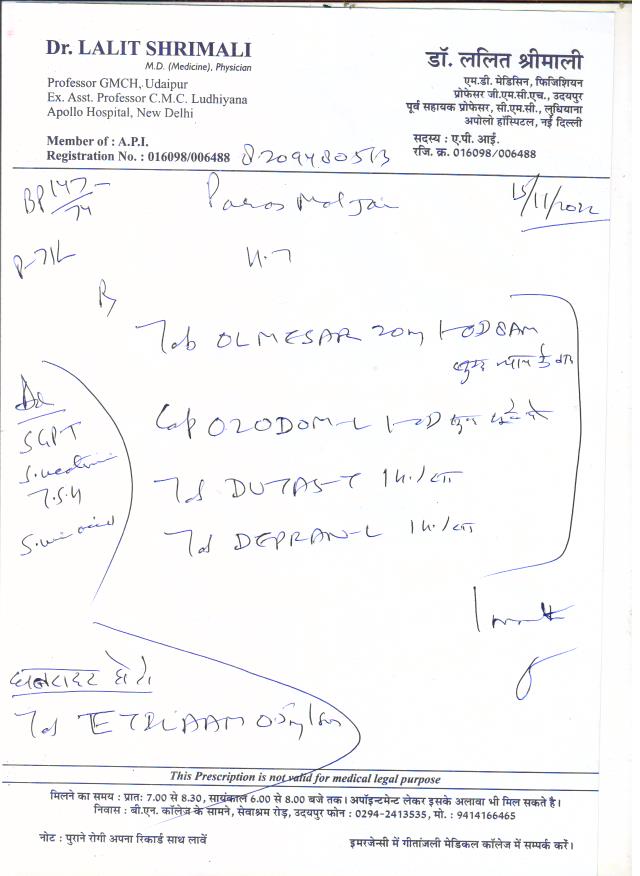 Dr. LALIT SHRIMALI
M.D. (Medicine), Physician
Professor GMCH, Udaipur
Ex. Asst. Professor C.M.C. Ludhiyana
Apollo Hospital, New Delhi
Member of : A.P.I.
Registration No. : 016098/006488
डॉ. ललित श्रीमाली
एम.डी. मेडिसिन, फिजिशियन
प्रोफेसर जी.एम.सी.एच., उदयपुर
पूर्व सहायक प्रोफेसर, सी.एम.सी., लुधियाना
अपोलो हॉस्पिटल, नई दिल्ली
सदस्य : ए.पी. आई.
रजि. क्र. 016098/006488
8209480513
BP 147/74
15/11/2022
Tab OLMESAR 20mg 1-OD 8AM
Cap OZODOM-L 1-OD
Tab DUTAS-T
Tab DEPRAN-L
SGPT
T.S.H
This Prescription is not valid for medical legal purpose
मिलने का समय : प्रातः 7.00 से 8.30, सायंकाल 6.00 से 8.00 बजे तक। अपॉइन्टमेन्ट लेकर इसके अलावा भी मिल सकते है।
निवास : बी.एन. कॉलेज के सामने, सेवाश्रम रोड़, उदयपुर फोन : 0294-2413535, मो. : 9414166465
नोट : पुराने रोगी अपना रिकार्ड साथ लावें
इमरजेन्सी में गीतांजली मेडिकल कॉलेज में सम्पर्क करें।